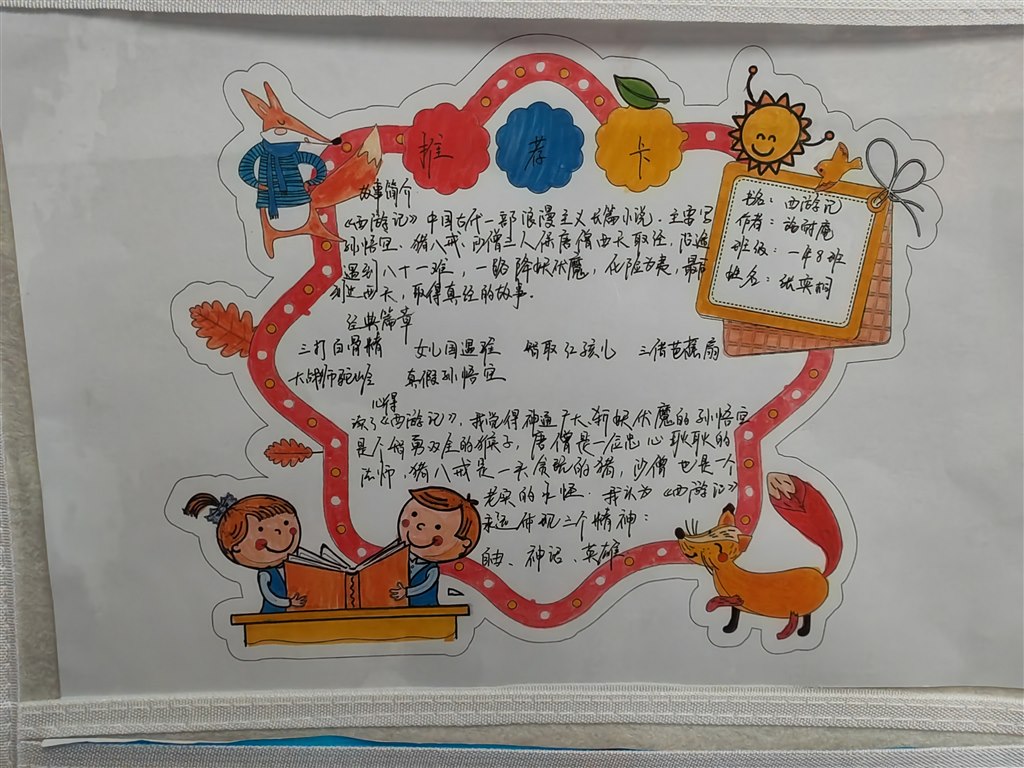 推荐卡
书名：西游记
作者：施耐庵
班级：一年8班
姓名：张奕桐
故事简介
《西游记》中国古代一部浪漫主义长篇小说．主要写
孙悟空．猪八戒．沙僧三人保唐僧西天取经．沿途
遇到八十一难，一路降妖伏魔，化险为夷，最后
到达西天，取得真经的故事。
经典篇章
三打白骨精 女儿国遇难 智取红孩儿 三借芭蕉扇
大战狮驼岭 真假孙悟空
心得
读了《西游记》，我觉得神通广大、斩妖伏魔的孙悟空
是个智勇双全的猴子，唐僧是一位忠心耿耿的
法师，猪八戒是一头贪吃的猪，沙僧也是一个
老实的手怪．我认为《西游记》
永远体现三个精神：
自由、神记、英雄